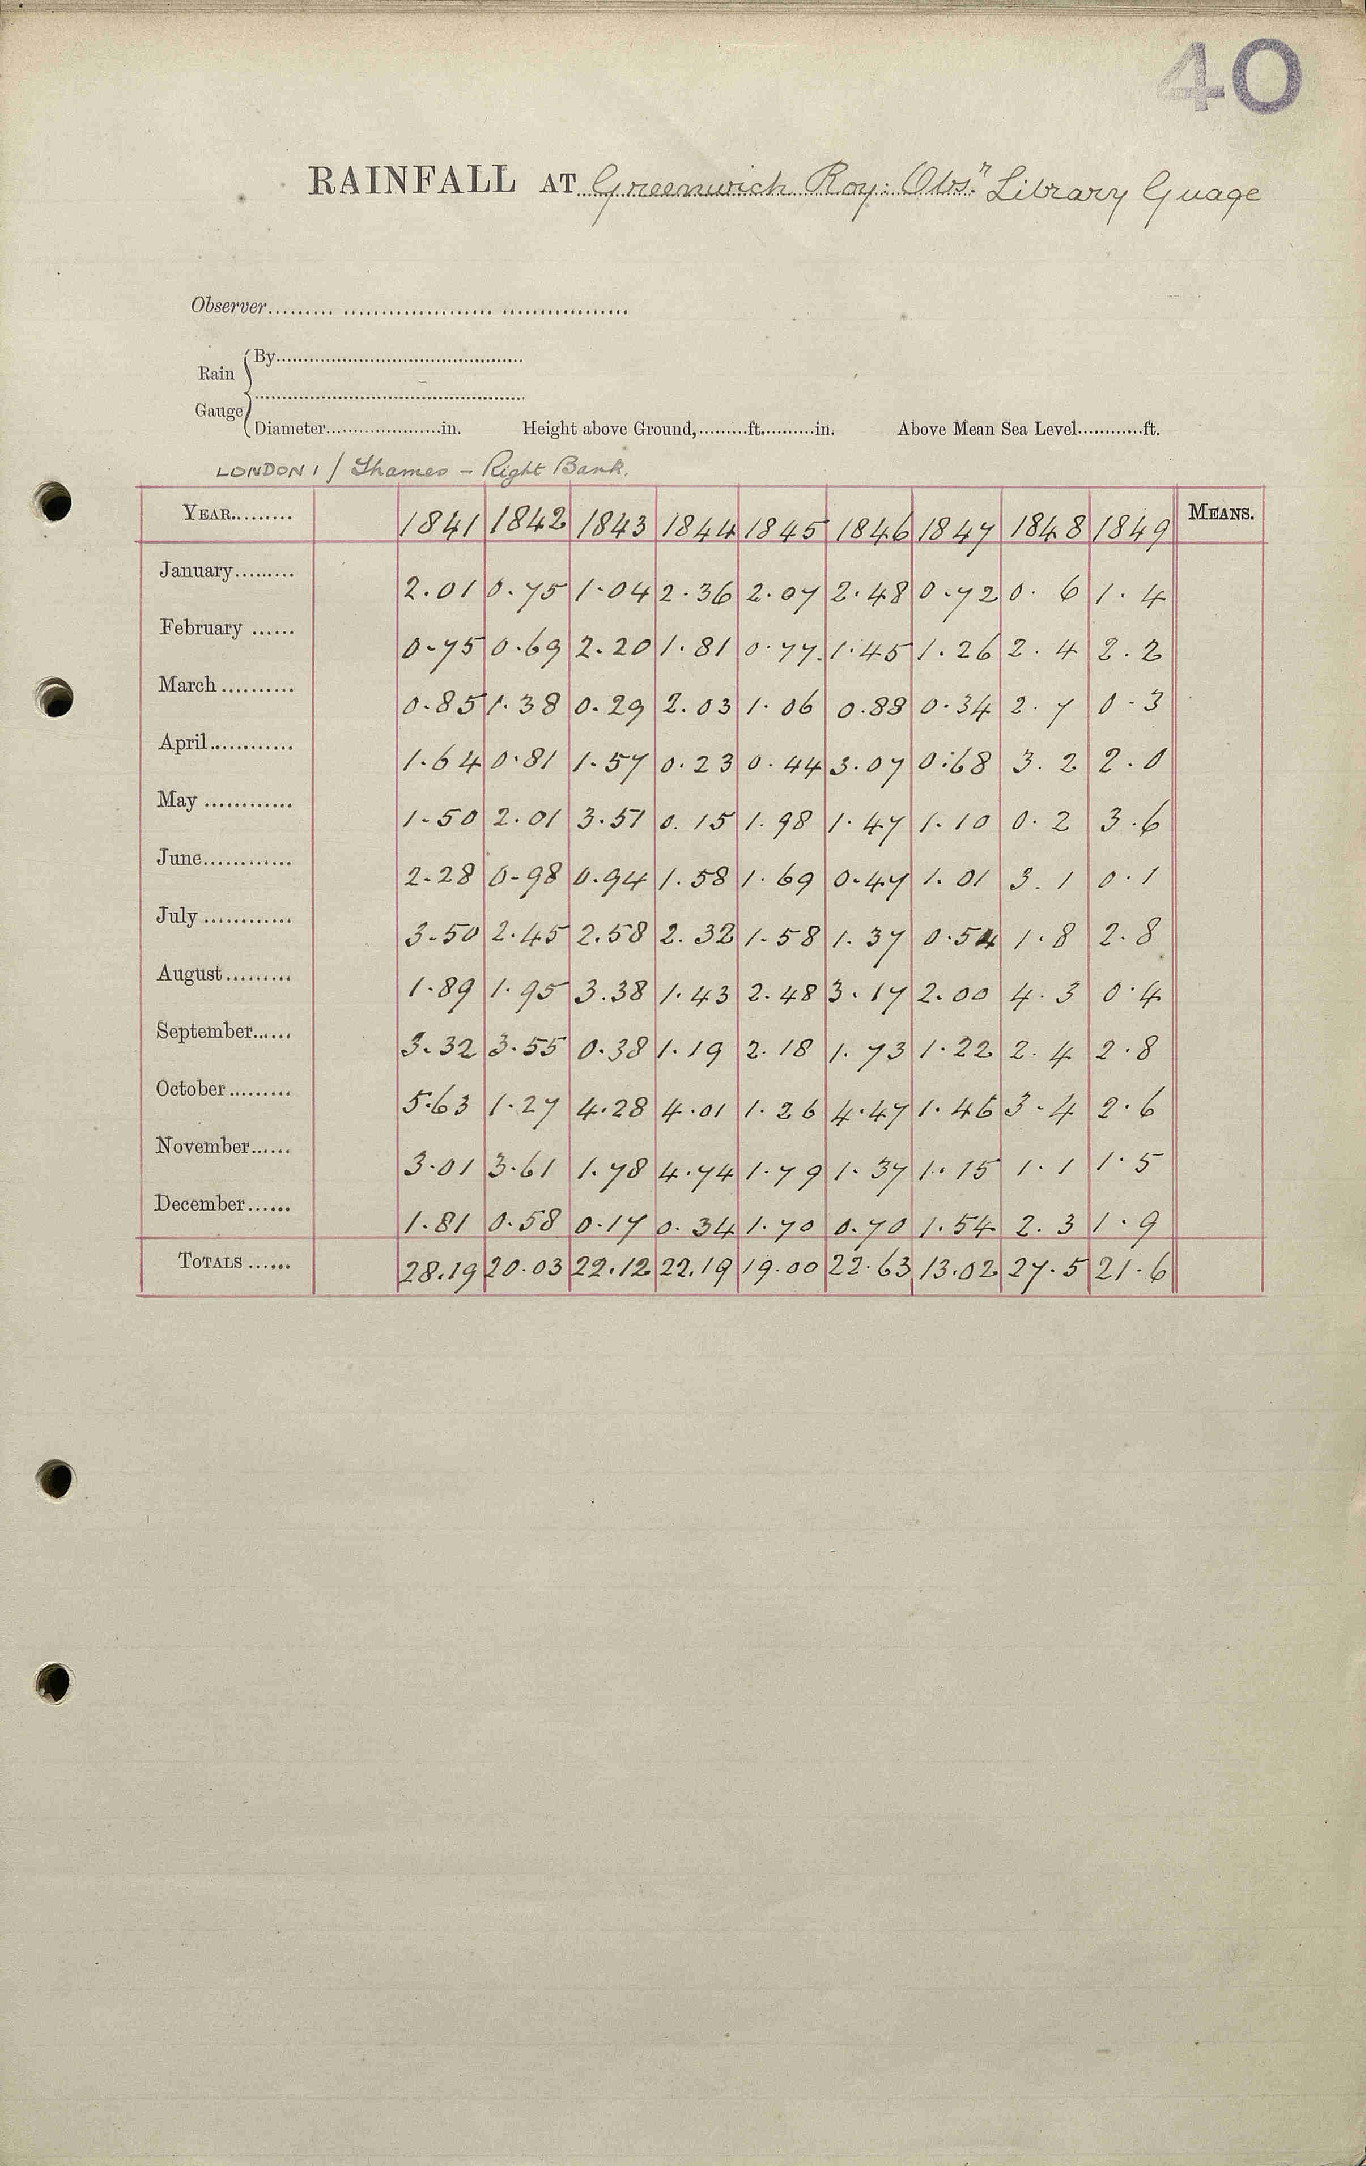 40
RAINFALL AT Greenwich Roy: Obsn Library Guage
Observer
Rain Gauge { By
Diameter in. Height above Ground, ft. in. Above Mean Sea Level ft.
LONDON 1 / Thames - Right Bank.
YEAR 1841 1842 1843 1844 1845 1846 1847 1848 1849 MEANS.
January 2.01 0.75 1.04 2.36 2.07 2.48 0.72 0.6 1.4
February 0.75 0.69 2.20 1.81 0.77 1.45 1.26 2.4 2.2
March 0.85 1.38 0.29 2.03 1.06 0.88 0.34 2.7 0.3
April 1.64 0.81 1.57 0.23 0.44 3.07 0.68 3.2 2.0
May 1.50 2.01 3.51 0.15 1.98 1.47 1.10 0.2 3.6
June 2.28 0.98 0.94 1.58 1.69 0.47 1.01 3.1 0.1
July 3.50 2.45 2.58 2.32 1.58 1.37 0.54 1.8 2.8
August 1.89 1.95 3.38 1.43 2.48 3.17 2.00 4.3 0.4
September 3.32 3.55 0.38 1.19 2.18 1.73 1.22 2.4 2.8
October 5.63 1.27 4.28 4.01 1.26 4.47 1.46 3.4 2.6
November 3.01 3.61 1.78 4.74 1.79 1.37 1.15 1.1 1.5
December 1.81 0.58 0.17 0.34 1.70 0.70 1.54 2.3 1.9
TOTALS 28.19 20.03 22.12 22.19 19.00 22.63 13.02 27.5 21.6